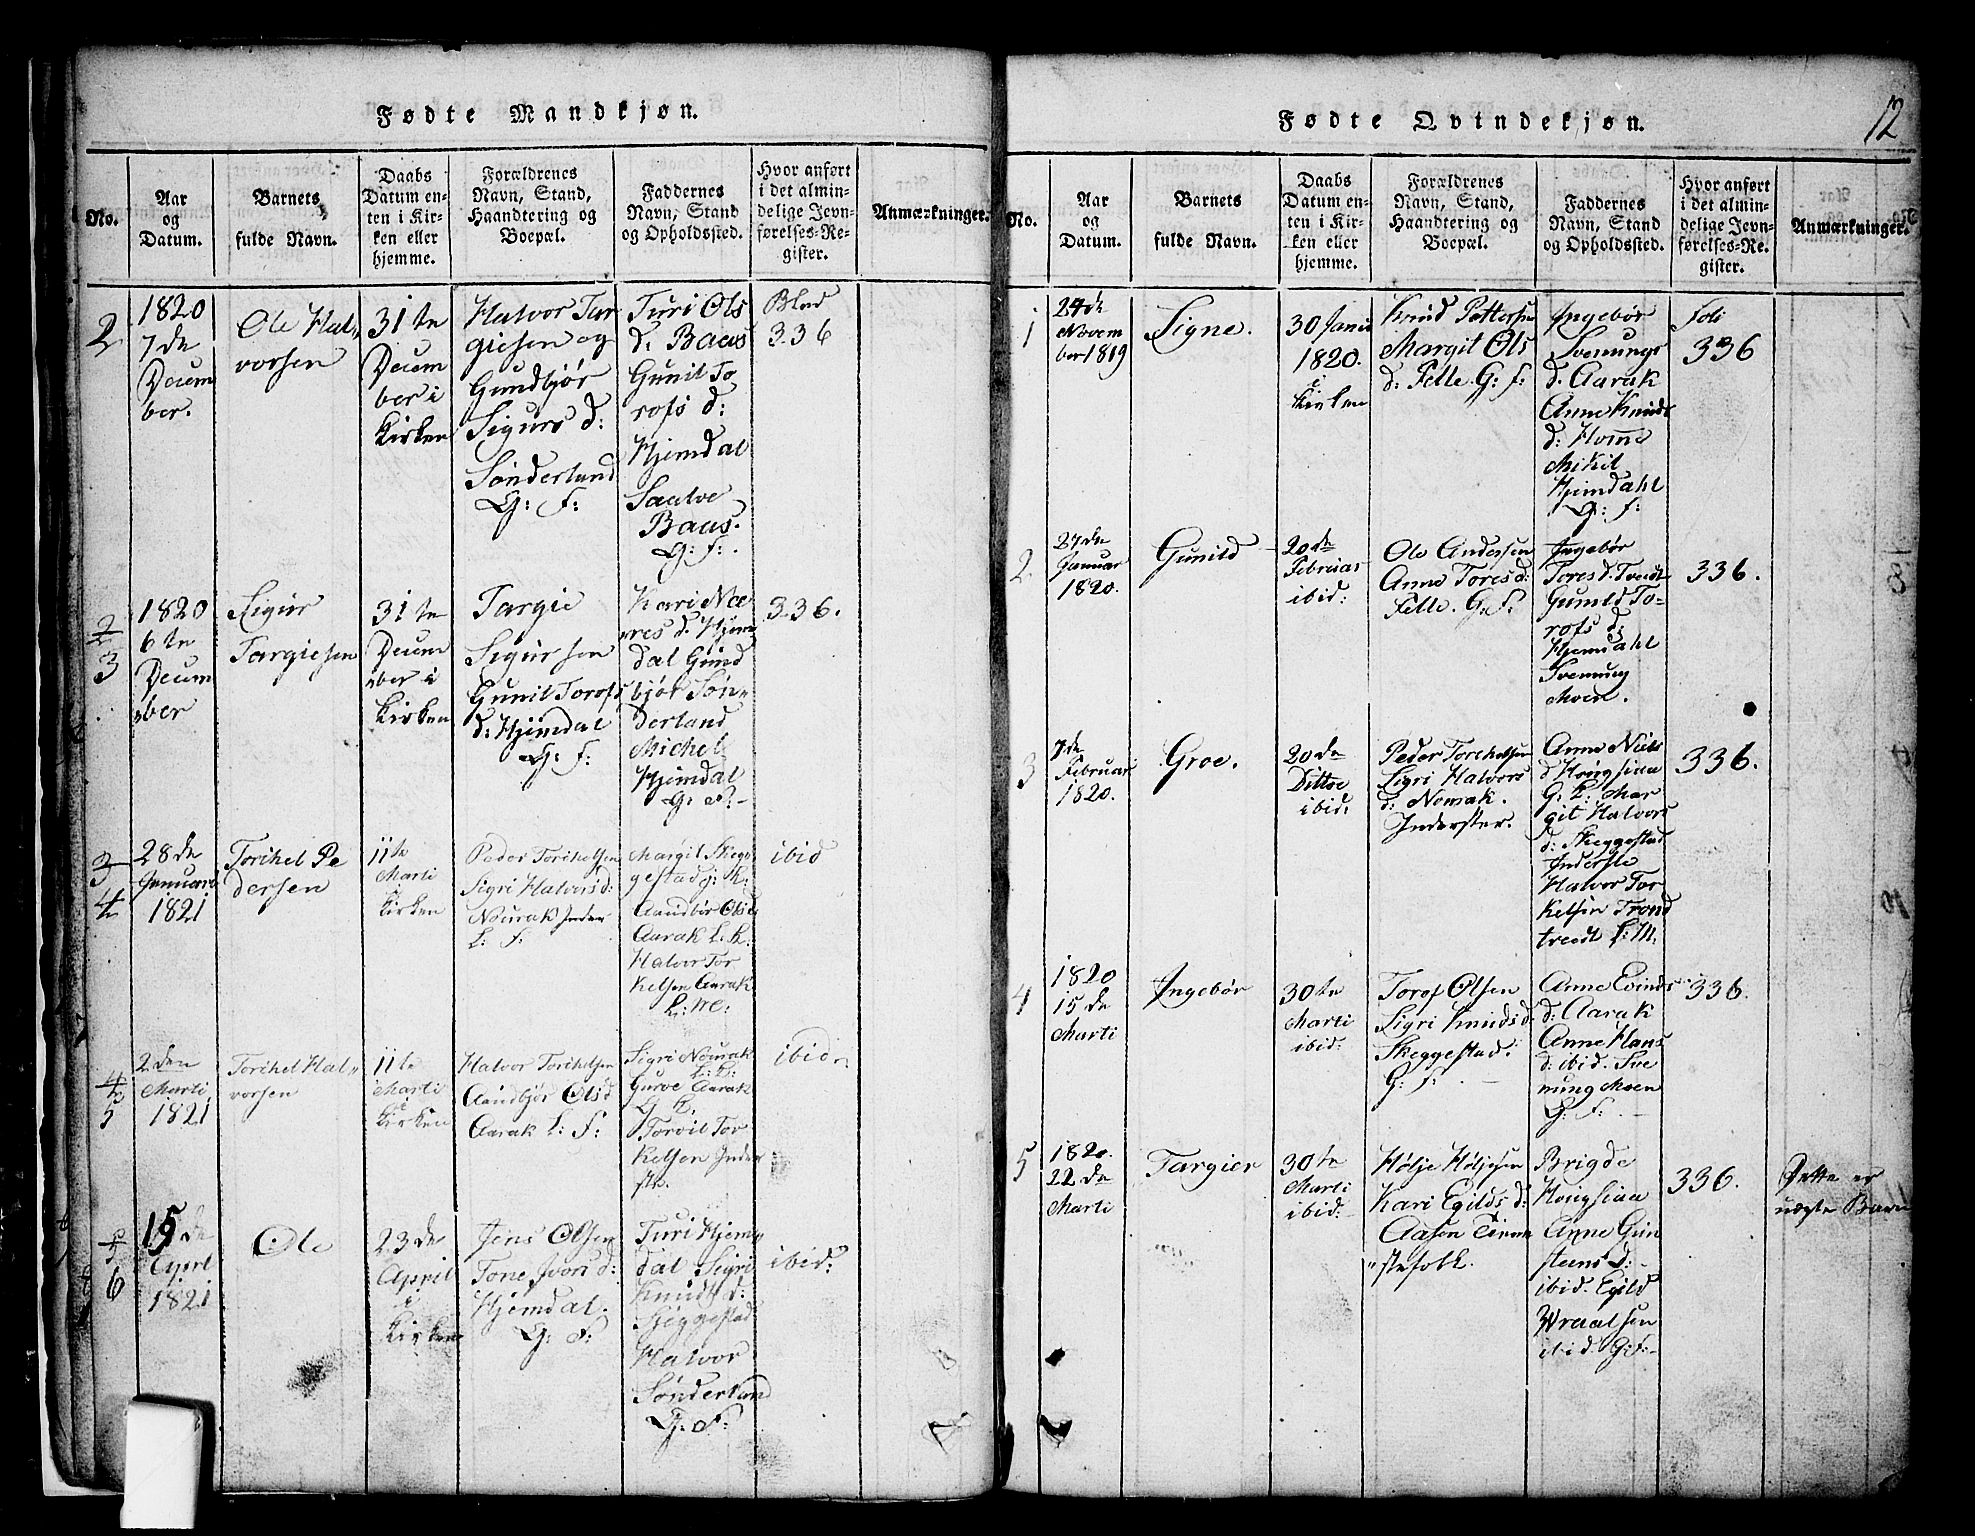 Fødte Mandkjøn.
No.
Aar
og
Datum.
Barnets
fulde Navn.
Daabs
Datum en-
ten i Kir-
ken eller
hjemme.
Forældrenes
Navn, Stand,
Haandtering og
Boepæl.
Faddernes
Navn, Stand
og Opholdssted.
Hvor anført
i det almin-
delige Jevn-
førelses-Re-
gister.
Anmærkninger.
2
1820
7de
Decem
ber.
Ole Hal„
vorsen
31te
Decem
ber i
Kirken
Halvor Tar
giesen og
Gundbjør
Sigurs d:
Sønderland
G: F:
Turi Ols
d: Baas
Gunil To
rofs d:
Hjemdal
Saalve
Baas.
G: F:
Blad
336
2
3
1820
6te
Decem
ber
Sigur
Targiesen
31te
Decem
ber i
Kirken
Targie
Sigursen
Gunil Torofs
d: Hjemdal
G: F:
Kari
res d. Hjem
dal Gund
bjør Søn„
derland
Michel
Hjemdal
G: F:
336.
3
4
28de
Januari
1821
Torchel Pe
dersen
11te
Marti
Kirken
Peder Torchelsen
Sigri Halvors d:
Nomak Inder
L: F:
Margit Skeg
gestad g: K:
Aandbør Olsd
Aarak L. K.
Halvor Tor
kelsen Aarak
L: M:
ibid
4
5
2den
Marti
1821
Torchel Hal„
vorsen
11te
Marti
i
Kirken
Halvor Torchelsen
Aandbjør Olsd
Aarak L: F:
Sigri Nomak
L: K:
Gurve Aarak
G K.
Torvil Tor
kelsen Inder
ste.
ibid
5
6
15de
April
1821
Ole
23de
April
i
Kirken
Jens Olsen
Tone Ivors d:
Hjemdal.
G: F:
Turi Hjem„
dal Sigri
Knuds d:
Skeggestad
Halvor
Sønderland
G: F:
ibid:
Fødte Qvindekjøn.
12
No.
Aar
og
Datum.
Barnets
fulde Navn.
Daabs
Datum en-
ten i Kir-
ken eller
hjemme.
Forældrenes
Navn, Stand,
Haandtering og
Boepæl.
Faddernes
Navn, Stand
og Opholdssted.
Hvor anført
i det almin-
delige Jevn-
førelses-Re-
gister.
Anmærkninger.
1
24de
Novem
ber 1819
Signe.
30 Janu
1820.
i
Kirken
Knud Pettersen
Margit Ols
d: Felle. G: F:
Ingebør
Svenungs
d. Aarak
Anne Knuds
d: Homme
Mikil
Hjemdahl
G: F:
Foli
336
2
27de
Januar
1820.
Gunild
20de
Februar
ibid:
Ole Andersen
Anne Tores d:
Felle. G: F:
Ingebør
Tores d. Tveidt
Gunild To-
rofs d:
Hjemdahl
Svenung
Moen.
336.
3
7de
Februar
1820.
Groe.
20de
Dittoe
ibid:
Peder Torchelsen
Sigri Halvors
d: Nomak.
Inderster.
Anne Niels
d Høigsiaa
G: K: Mar
git Halvors
d: Skeggestad
Inderste
Halvor Tor
kelsen Trond
treedt L: M:
336.
4
1820
15de
Marti
Ingebør
30te
Marti
ibid:
Torof Olsen
Sigri Knuds d:
Skeggestad.
G: F:
Anne Evinds
d: Aarak
Anne Hans
d: ibid. Sve
nung Moen
G: F:
336.
5
1820.
22de
Marti
Targier
30te
Marti
ibid:
Hølje Høljesen
Kari Egilds d:
Aasen
„stefolk.
Brigde
Høigsiaa
Anne Gun
steens d:
ibid. Egild
Wraalsen
ibid. G: F:
336.
Dette er
uægte Barn